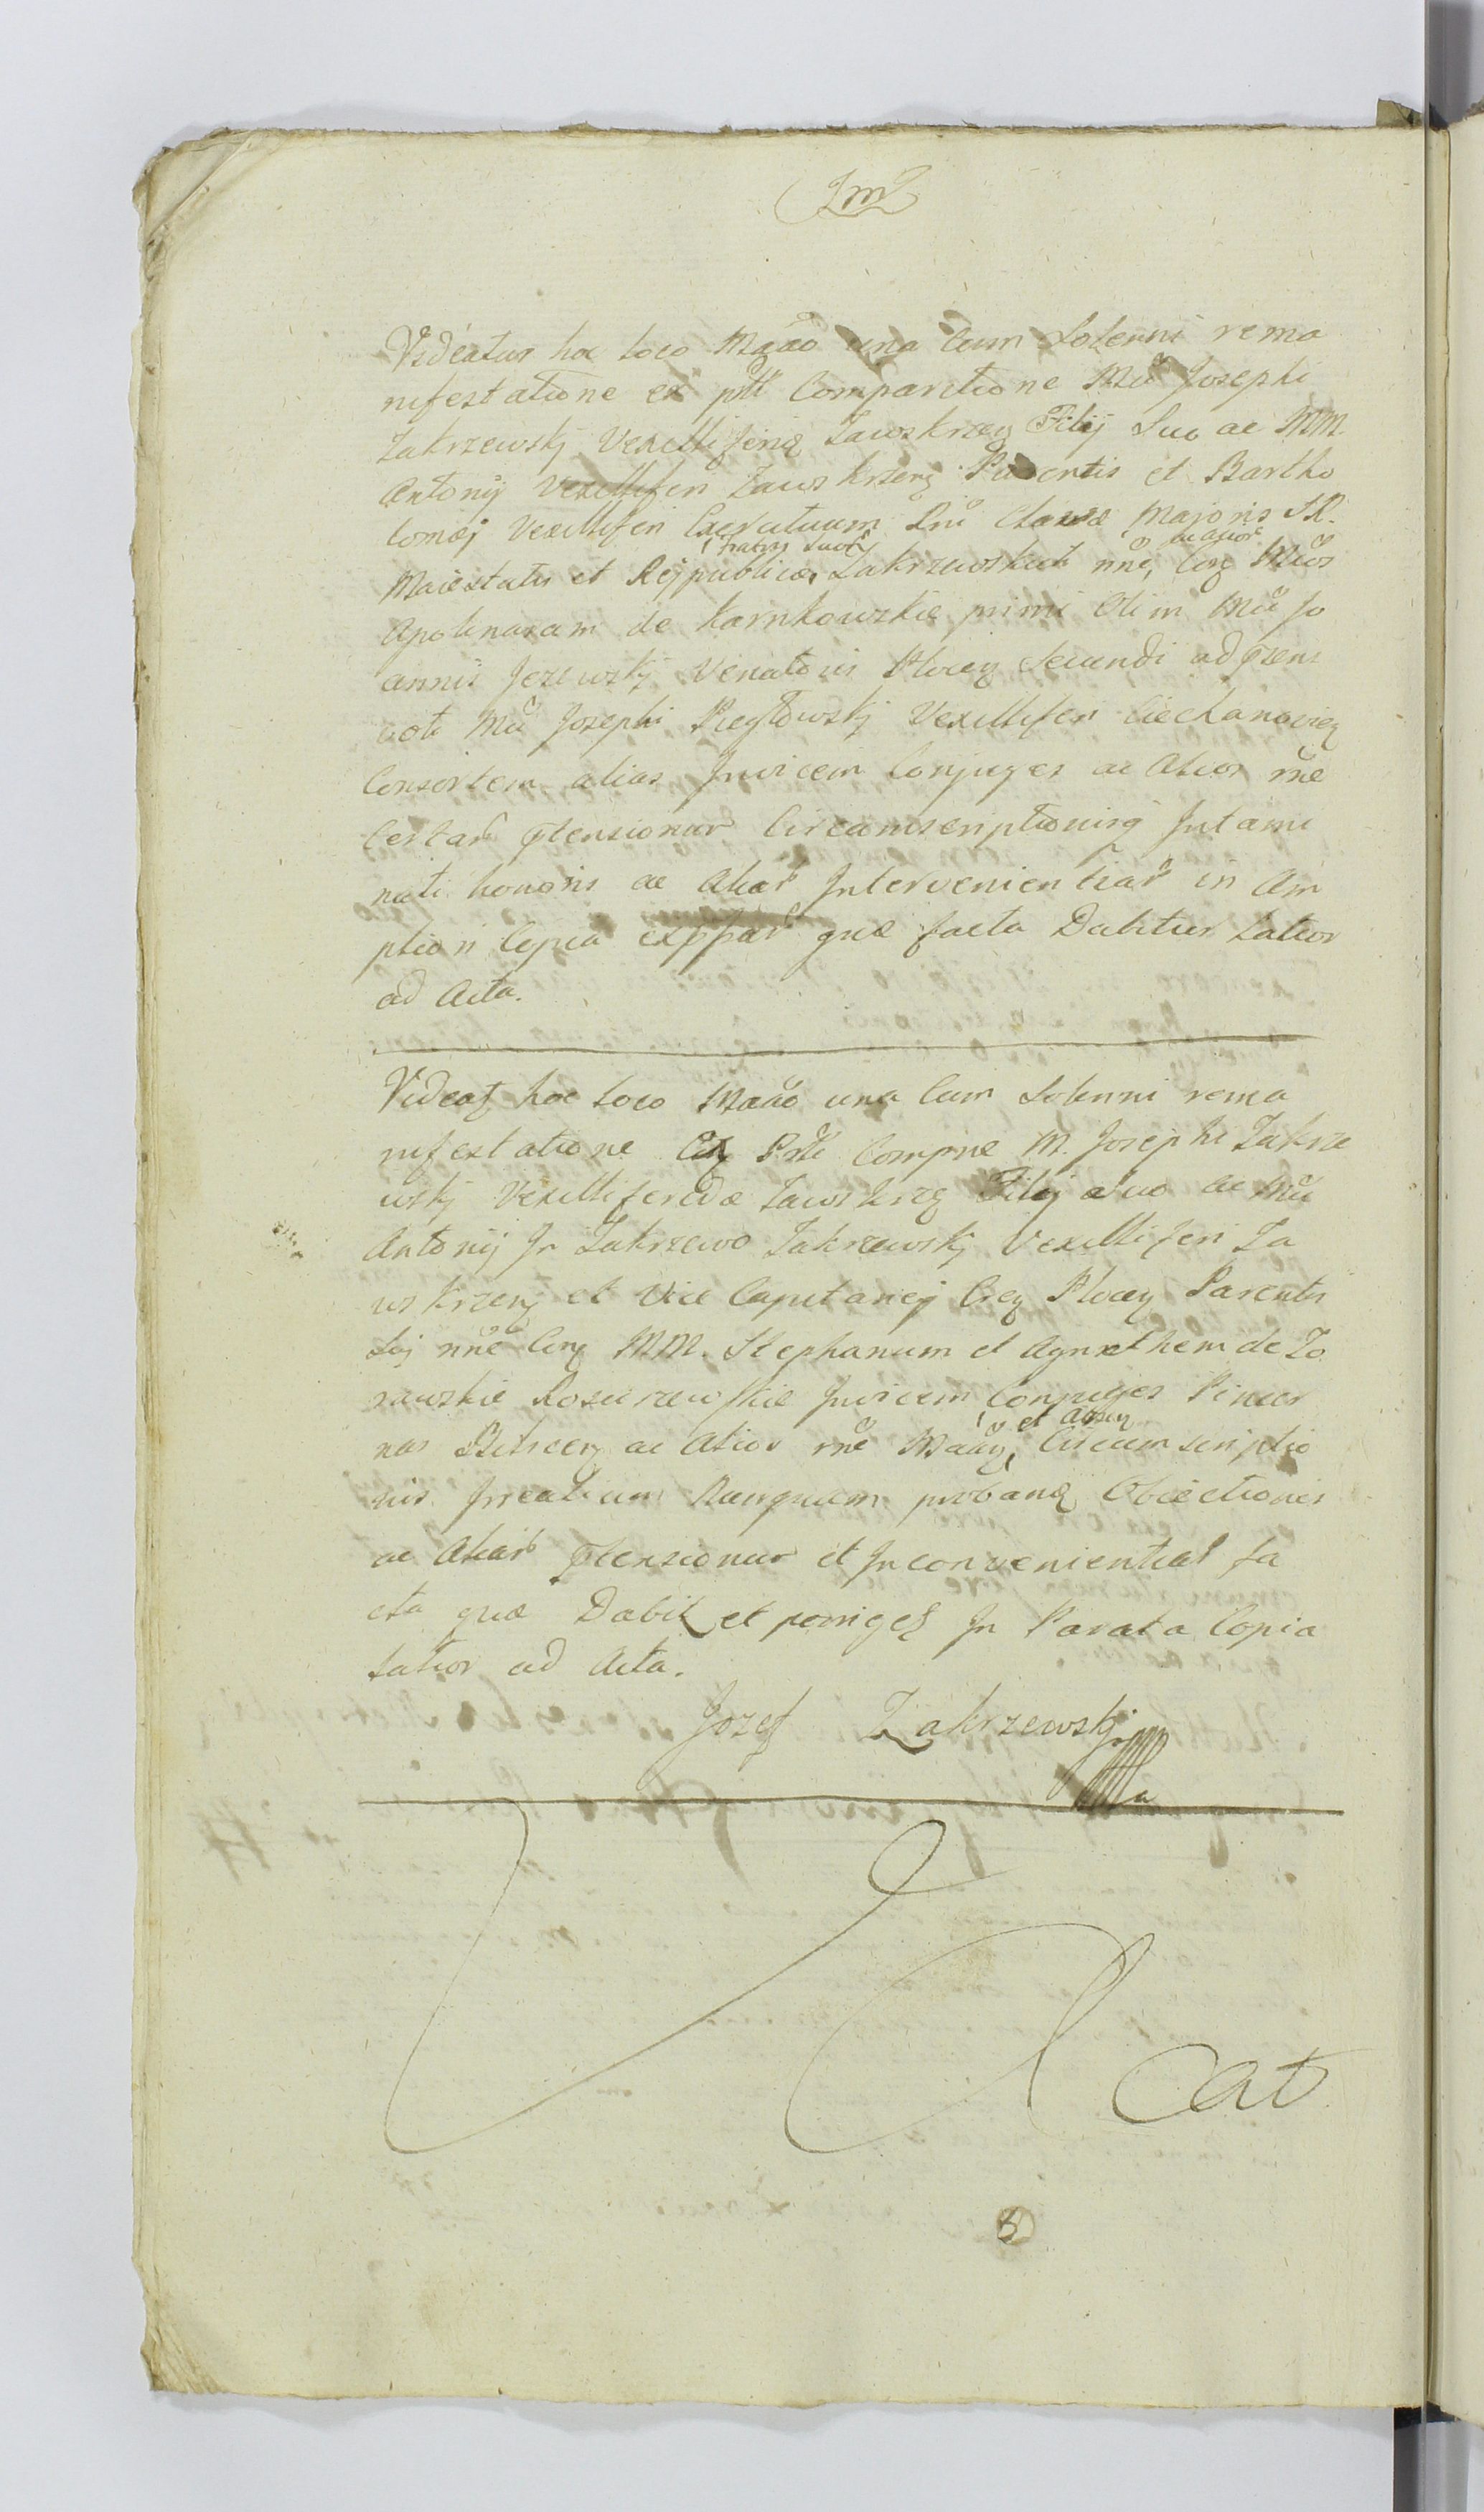 Im
Videatur hoc loco Mgão una Cum Solenni rema
nifestatione ex ptĕ Comparitione Mči Josephi
Zakrzewskj Vexilliferię Zawskrzeń Filij Suo ac MM.
Antonij Vexilliferi Zawskrzeń Parentis et Bartho
lomæj Vexilliferi Exercituum Rni Clavæ Majoris S.R.
Fratris Suor ac alior
Maiestatis et Rejpublicæ, Zakrzewskich nňe, Cör Mčos
Apolinaram de Karnkowskie primi Olim Mči Jo
annis Jezewskj Venatoris Plocen Secundi ad præns
voti Mči Josephi Piegłowskj Vexilliferi Ciechanovien
Consortem alias Invicem Conjuges ac Alios rne
Certar ptensionur Circumscriptionisq Intami
nati honoris ac Aliar Intervenientiar in Am
pliori Copia exppar quæ facta Dabitur Latior
ad Acta.
Videat hoc loco Maão una Cum Solenni rema
nifestatione Ex Pŕte Compne M. Josephi Zakrze
wskj Vexilliferidæ Zawskrzen Filij a suo ac Mči
Antonij In Zakrzewo Zakrzewskj Vexilliferi Za
wskrzen et Vice Capitanej Cren Plocen Parentis
Sui nňe Cör MM. Stephanum et Agnethem de Zo
rawskie Rosciszewskie Invicem Conjuges Pincer
et Assen
nas Bielscen ac Alior rne Maăn, Circumscriptio
nis Irrealium Nunquam probanę Obiectionis
ac Aliar ptensionur et Inconvenientiar fa
cta quæ Dabit et porriget In Parata Copia
Latior ad Acta.
Jozef Zakrzewskj
Cat
5